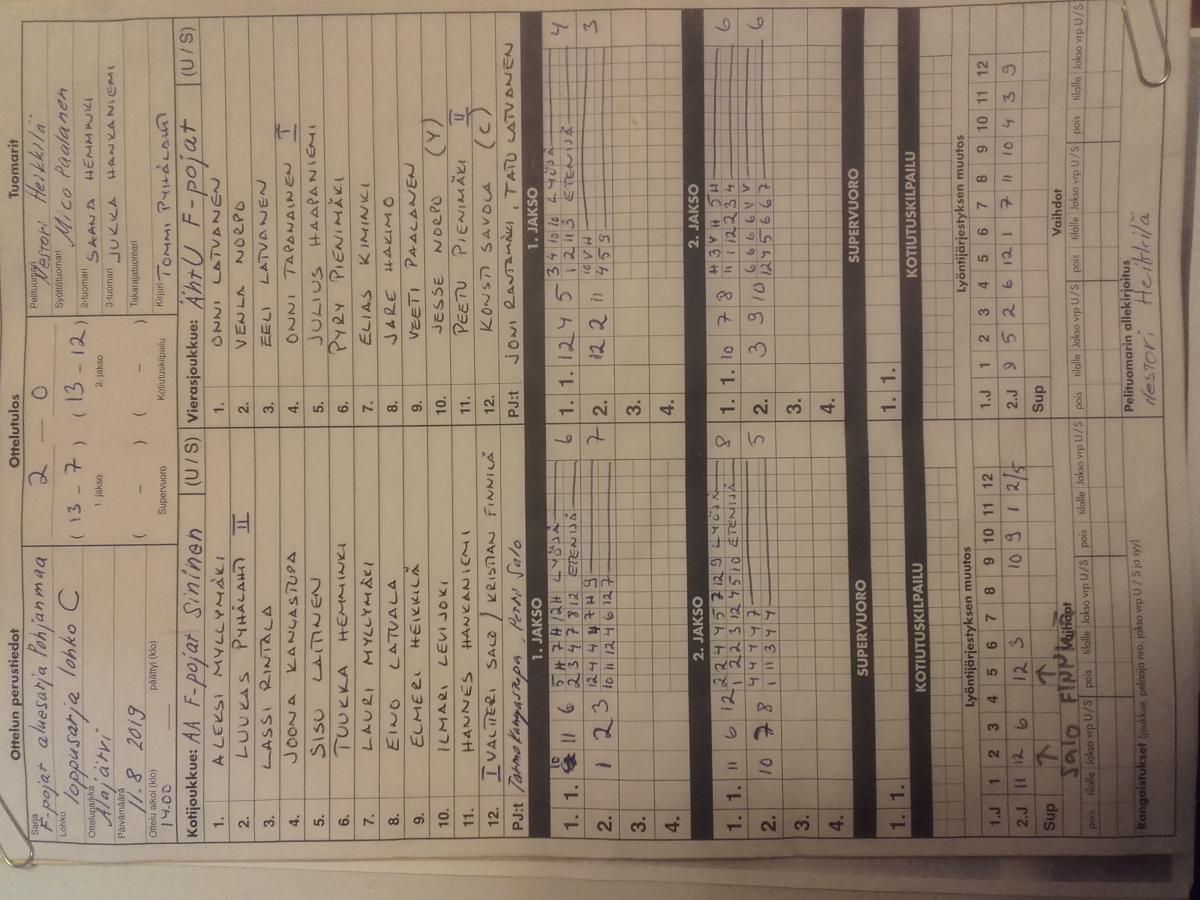 Ottelun perustiedot
Sarja
F-pojat aluesarja Pohjanmaa
Lohko
loppusarja lohko C
Ottelupaikka
Alajärvi
Päivämäärä
11.8 2019
Ottelu alkoi (klo) päättyi (klo)
14.00
Ottelutulos
2 — 0
( 13 - 7 ) ( 13 - 12 )
1. jakso 2. jakso
( - ) ( - )
Supervuoro Kotiutuskilpailu
Tuomarit
Pelituomari
Nestori Heikkilä
Syöttötuomari
Mico Paalanen
2-tuomari
SAANA HEMMINKI
3-tuomari
JUKKA HANKANIEMI
Takarajatuomari
Kirjuri TOMMI PYHÄLAHTI
Kotijoukkue: AA F-pojat Sininen (U / S)
1. ALEKSI MYLLYMÄKI
2. LUUKAS PYHÄLAHTI II
3. LASSI RINTALA
4. JOONA KANGASTUPA
5. SISU LAITINEN
6. TUUKA HEMMINKI
7. LAURI MYLLYMÄKI
8. EINO LATVALA
9. ELMERI HEIKKILÄ
10. ILMARI LEVIJOKI
11. HANNES HANKANIEMI
12. I VALTTERI SALO / KRISTIAN FINNILÄ
PJ:t Tarmo Kangastupa, Petri Salo
Vierasjoukkue: ÄhtU F-pojat (U / S)
1. ONNI LATVANEN
2. VENLA NORPO
3. EELI LATVANEN
4. ONNI TAPANAINEN I
5. JULIUS HAAPANIEMI
6. PYRY PIENIMÄKI
7. ELIAS KIMINKI
8. JARE HAKIMO
9. VEETI PAALANEN
10. JESSE NORPO (Y)
11. PEETU PIENIMÄKI II
12. KONSTI SAVOLA (C)
PJ:t JONI RANTAMÄKI, TATU LATVANEN
1. JAKSO
1. 1. 10 11 6 5 H 7 H 12 H LYÖJÄ 6
2 3 4 7 8 12 ETENIJÄ
2. 1 2 3 12 4 4 H 7 H 9 7
10 11 12 4 6 12 7
3.
4.
1. JAKSO
1. 1. 12 4 5 3 4 10 10 LYÖJÄ 4
1 2 11 3 ETENIJÄ
2. 12 2 11 10 V H 3
4 5 9
3.
4.
2. JAKSO
1. 1. 11 6 12 2 2 4 4 5 7 12 9 LYÖJÄ 8
1 2 2 3 12 4 5 10 ETENIJÄ
2. 10 7 8 4 4 4 4 7 5
1 11 3 4 4
3.
4.
2. JAKSO
1. 1. 10 7 8 H 3 V H 5 H 6
11 1 12 2 3 4
2. 3 9 10 6 6 6 6 V V 6
12 4 5 6 6 7
3.
4.
SUPERVUORO
1. 1.
SUPERVUORO
1. 1.
KOTIUTUSKILPAILU
KOTIUTUSKILPAILU
Lyöntijärjestyksen muutos
1.J 1 2 3 4 5 6 7 8 9 10 11 12
2.J 11 12 6 12 3 10 9 1 2/5
Sup ↑ ↑
SALO FINNILÄ
Lyöntijärjestyksen muutos
1.J 1 2 3 4 5 6 7 8 9 10 11 12
2.J 9 5 2 6 12 1 7 11 10 4 3 9
Sup
Vaihdot
pois tilalle Jakso vrp U / S pois tilalle Jakso vrp U / S pois tilalle Jakso vrp U / S
Vaihdot
pois tilalle Jakso vrp U / S pois tilalle Jakso vrp U / S pois tilalle Jakso vrp U / S
Rangaistukset (joukkue, pelaaja nro, jakso vrp U / S ja syy)
Pelituomarin allekirjoitus
Nestori Heikkilä